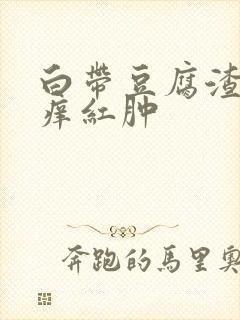 白帶豆腐渣
痒紅肿
奔跑的馬里奧